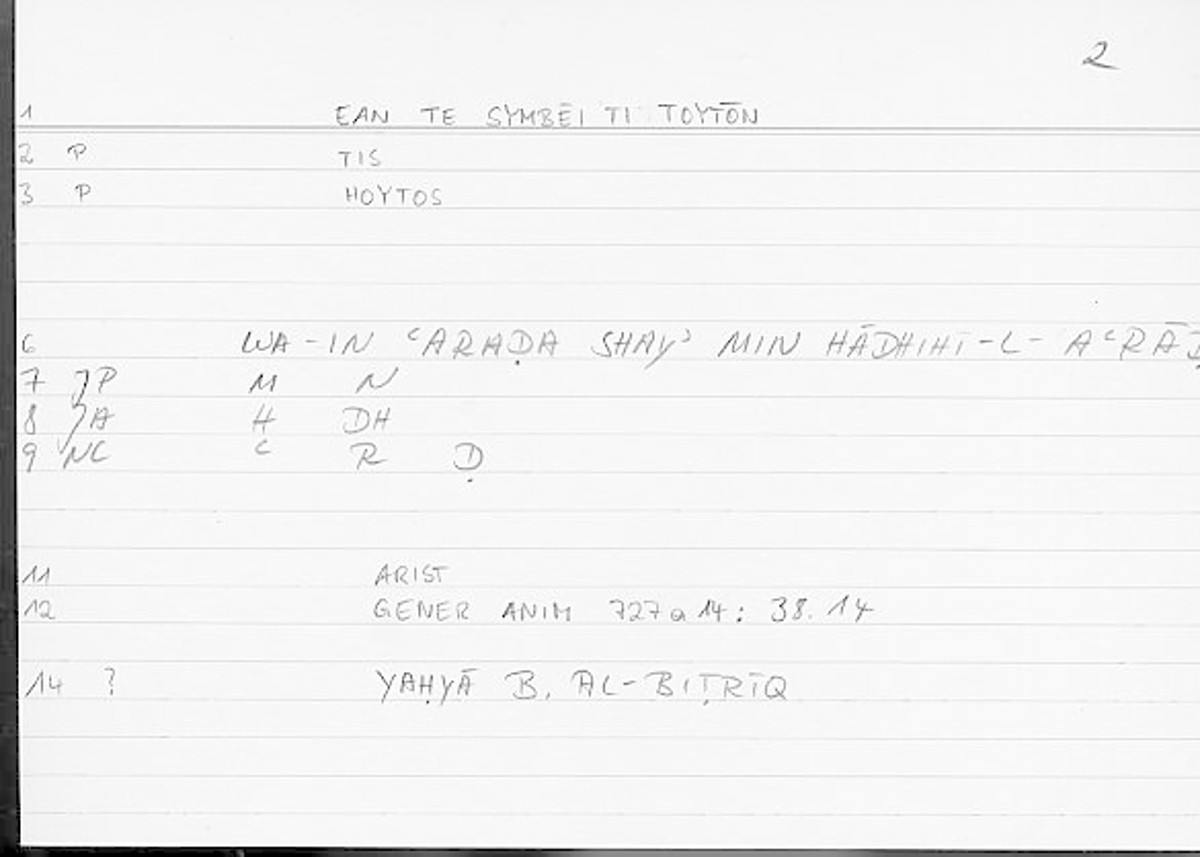 2
1 EAN TE SYMBĒI TI TOYTŌN
2 P TIS
3 P HOYTOS
6 WA-IN ʿARAḌA SHAYʾ MIN HĀDHIHI-L-AʿRĀḌ
7 JP M N
8 JA H DH
9 NC ʿ R Ḍ
11 ARIST
12 GENER ANIM 727a14: 38.14
14 ? YAḤYĀ B. AL-BIṬRĪQ